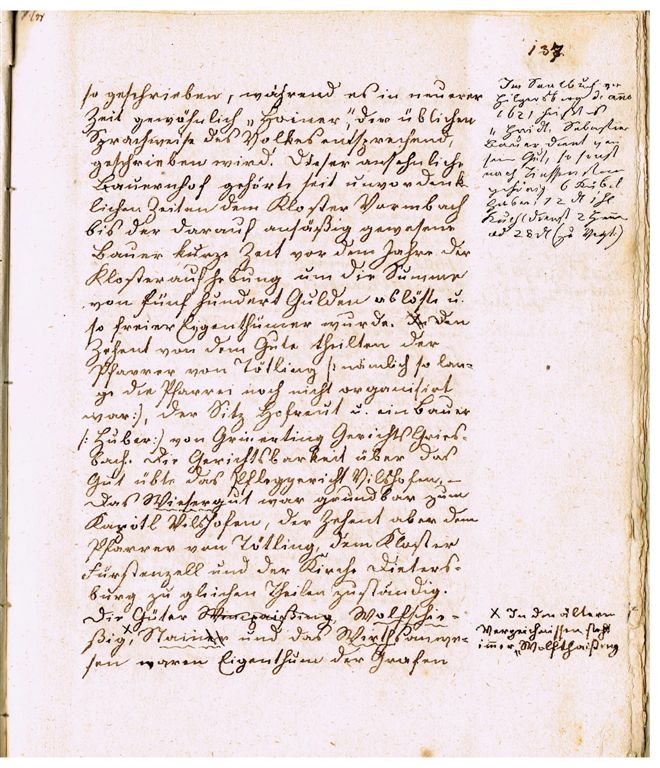 137.
so geschrieben, während es in neuerer
Zeit gewöhnlich „Hoiner", der üblichen
Sprachweise des Volkes entsprechend,
geschrieben wird. Dieser ansehnliche
Bauernhof gehörte seit unvordenk-
lichen Zeiten dem Kloster Vormbach
bis der darauf ansäßig gewesene
Bauer kurze Zeit vor dem Jahre der
Klosteraufhebung um die Summe
von fünf hundert Gulden ablöste u.
so freier Eigenthümer wurde. Den
Zehent von dem Gute theilten der
Pfarrer von Tötling /: nämlich so lan-
ge die Pfarrei noch nicht organisirt
war :/, der Sitz Hofreut u. ein Bauer
/: Huber :/ von Gerichts Gries-
bach. Die Gerichtsbarkeit über das
Gut übte das Pfleggericht Vilshofen. –
Das Wiesergut war grundbar zum
Kapitl Vilshofen, der Zehent aber dem
Pfarrer von Tötling, dem Kloster
Fürstenzell und der Kirche Dieters-
burg zu gleichen Theilen zuständig.
Die Güter Wolfschie-
ßig, Stainer und das Wirthsanwe-
sen waren Eigenthum der Grafen
Im Saalbuch v.
Hilgersberg d. anno
1621 heißt es
Sebastian
Bauer dient von
seim Gut, so sonst
nach
gehörig 6 Kübel
Haber, 12 dl
Kuchldienst 2
28 dl (zu Vogt)
X In den ältern
Verzeichnissen steht
immer „Wolfthaißing